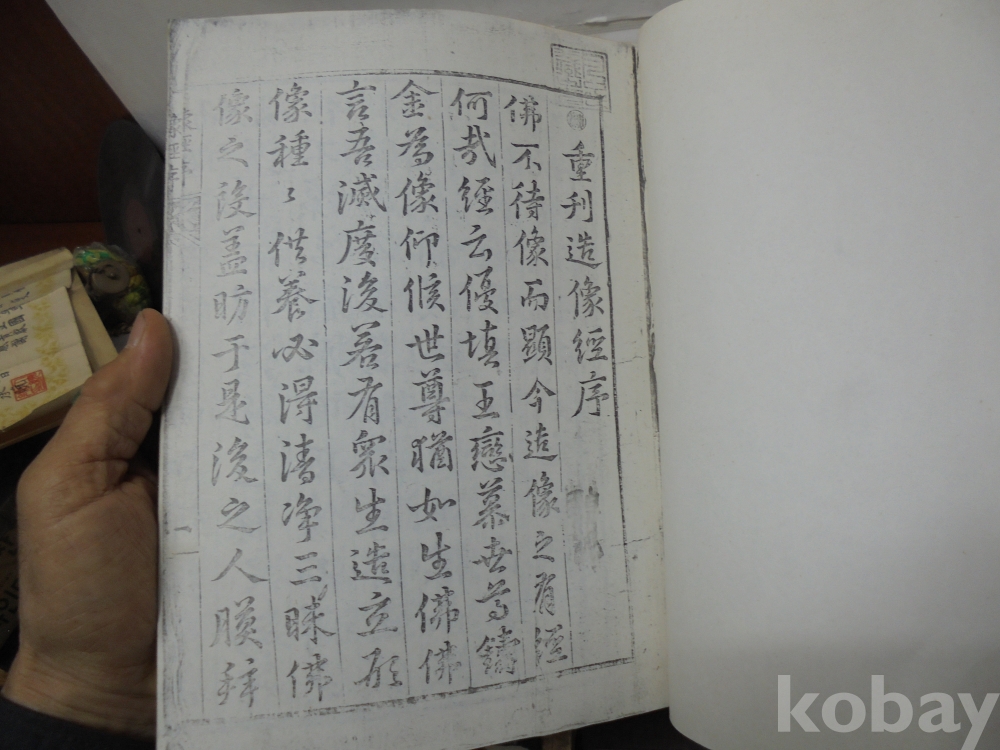 重刊造像經序
佛不待像而顯今造像之有經
何哉經云優填王戀慕世尊鑄
金為像仰候世尊猶如生佛佛
言吾滅度後若有衆生造立形
像種〻供養必得清净三昧佛
像之設盖昉于是後之人膜拜
像經序
一
kobay